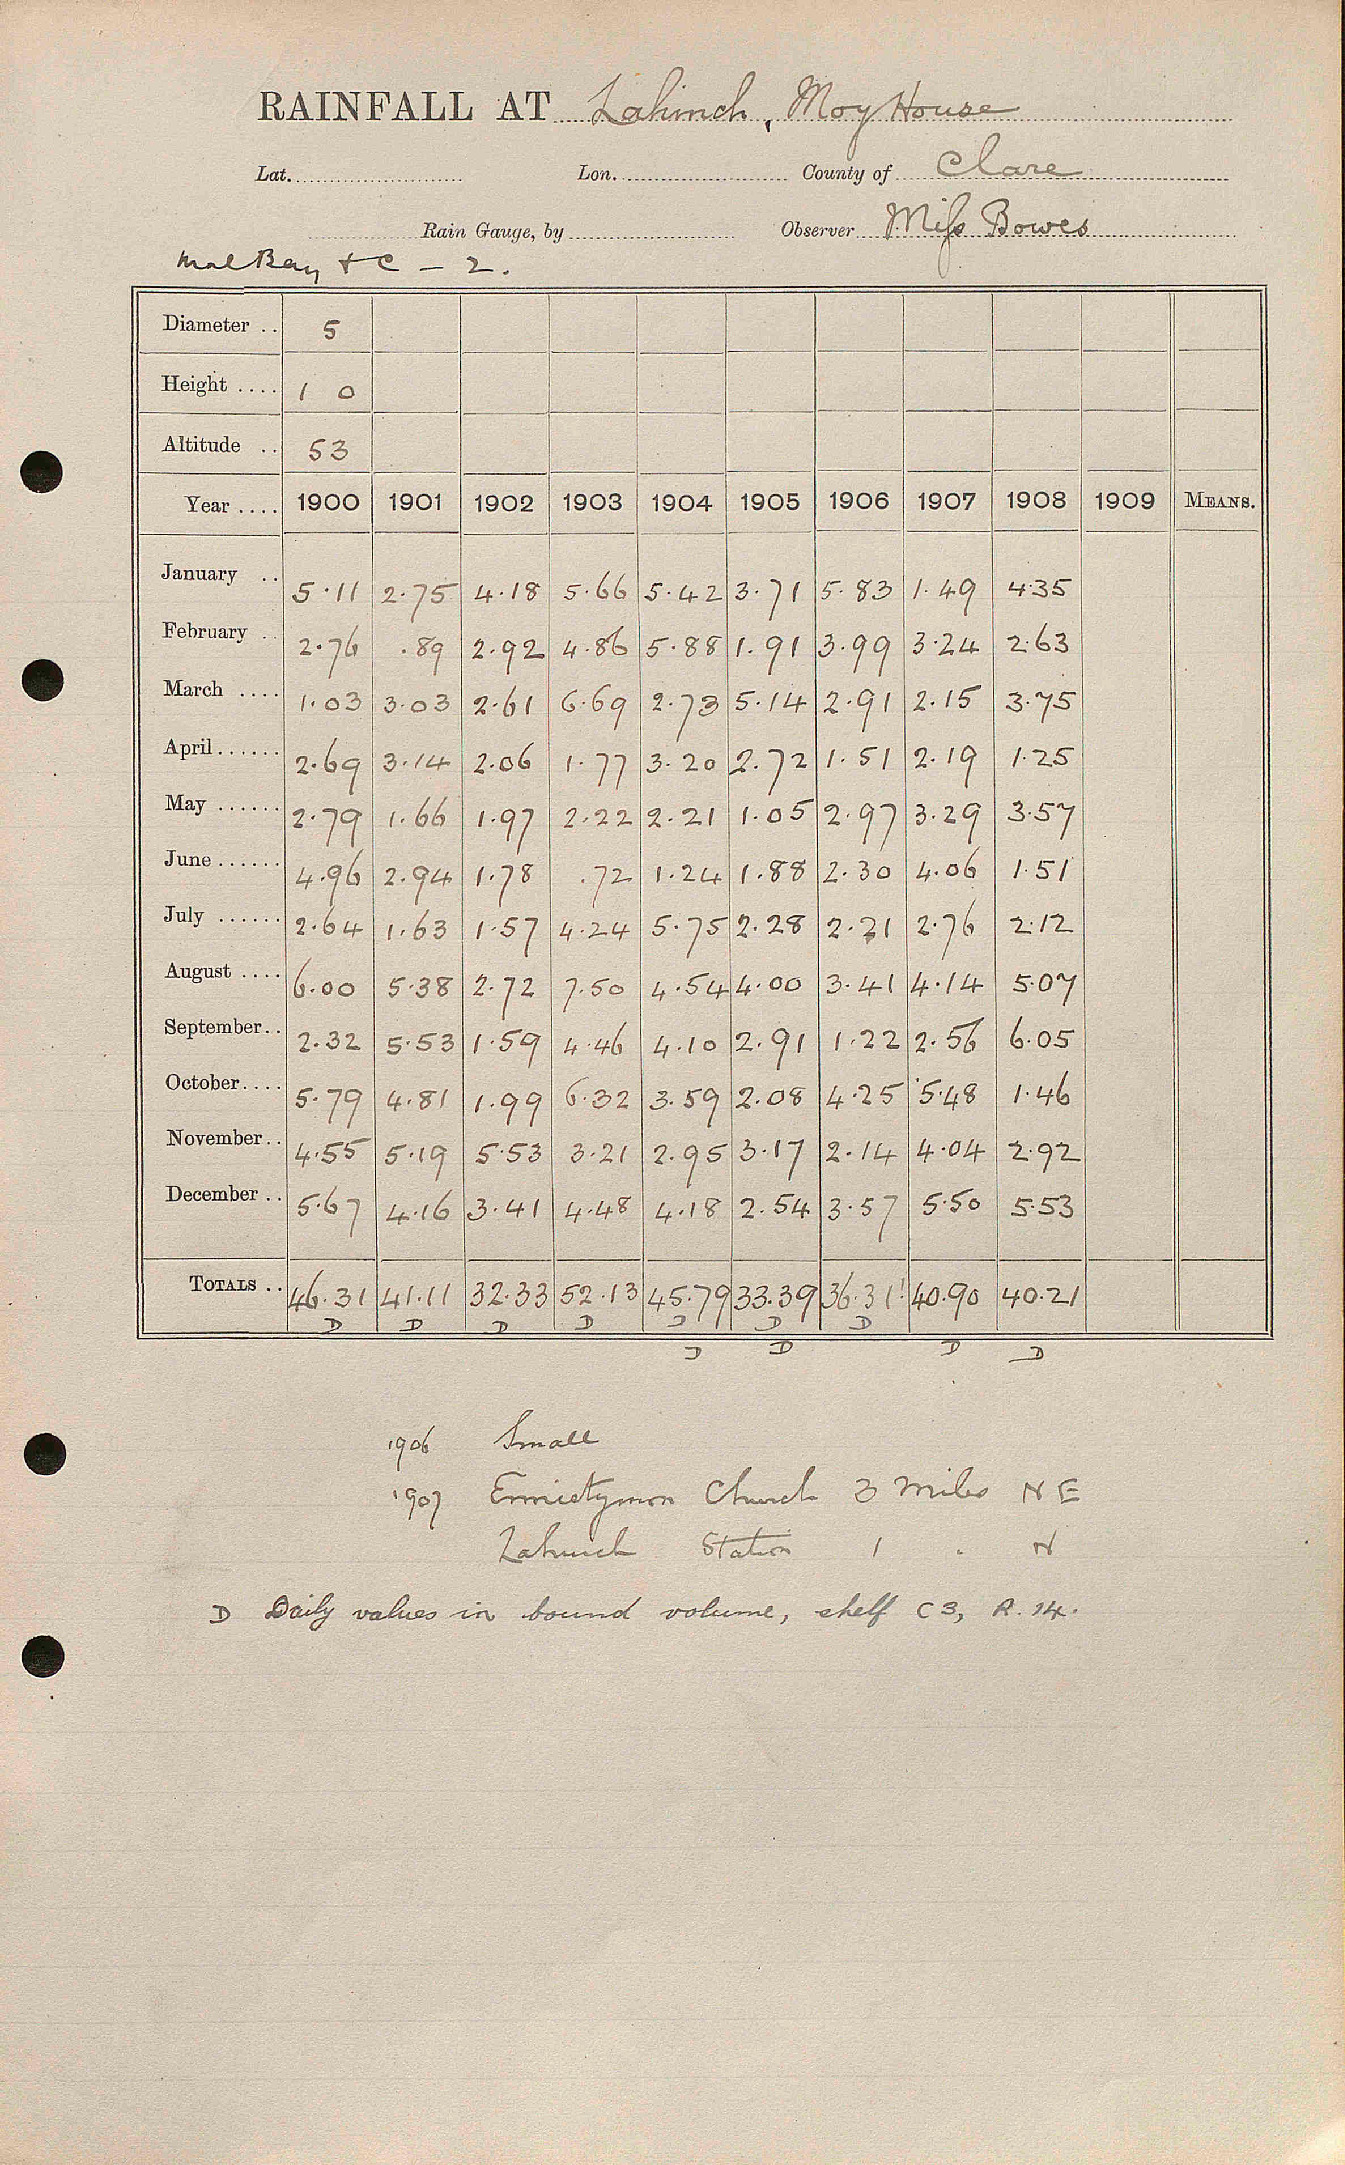 RAINFALL AT Lahinch, Moy House
Lat. Lon. County of Clare
Rain Gauge, by Observer Miss Bowes
Mal Bay + C - 2.
Diameter .. 5
Height .... 1 0
Altitude .. 53
Year .... 1900 1901 1902 1903 1904 1905 1906 1907 1908 1909 MEANS.
January .. 5.11 2.75 4.18 5.66 5.42 3.71 5.83 1.49 4.35
February .. 2.76 .89 2.92 4.86 5.88 1.91 3.99 3.24 2.63
March .... 1.03 3.03 2.61 6.69 2.73 5.14 2.91 2.15 3.75
April...... 2.69 3.14 2.06 1.77 3.20 2.72 1.51 2.19 1.25
May ...... 2.79 1.66 1.97 2.22 2.21 1.05 2.97 3.29 3.57
June...... 4.96 2.94 1.78 .72 1.24 1.88 2.30 4.06 1.51
July ...... 2.64 1.63 1.57 4.24 5.75 2.28 2.21 2.76 2.12
August .... 6.00 5.38 2.72 7.50 4.54 4.00 3.41 4.14 5.07
September.. 2.32 5.53 1.59 4.46 4.10 2.91 1.22 2.56 6.05
October.... 5.79 4.81 1.99 6.32 3.59 2.08 4.25 5.48 1.46
November.. 4.55 5.19 5.53 3.21 2.95 3.17 2.14 4.04 2.92
December .. 5.67 4.16 3.41 4.48 4.18 2.54 3.57 5.50 5.53
TOTALS .. 46.31 41.11 32.33 52.13 45.79 33.39 36.31 40.90 40.21
D D D D D D D
D D D D
1906 Small
1907 Ennistymon Church 3 Miles NE
Lahinch Station 1 . N
D Daily values in bound volume, shelf C3, R. 14.